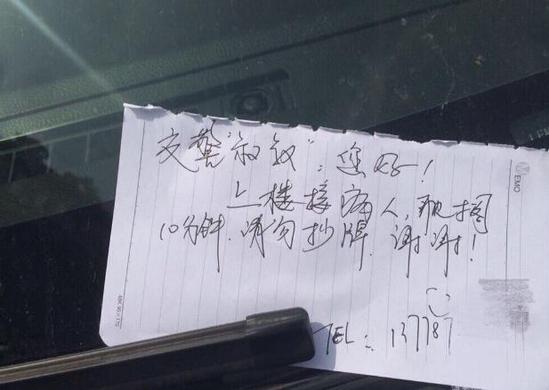 交警"叔叔":您好!
上楼接病人,
10分钟.请勿抄牌.谢谢!
TEL: 137787
EMO